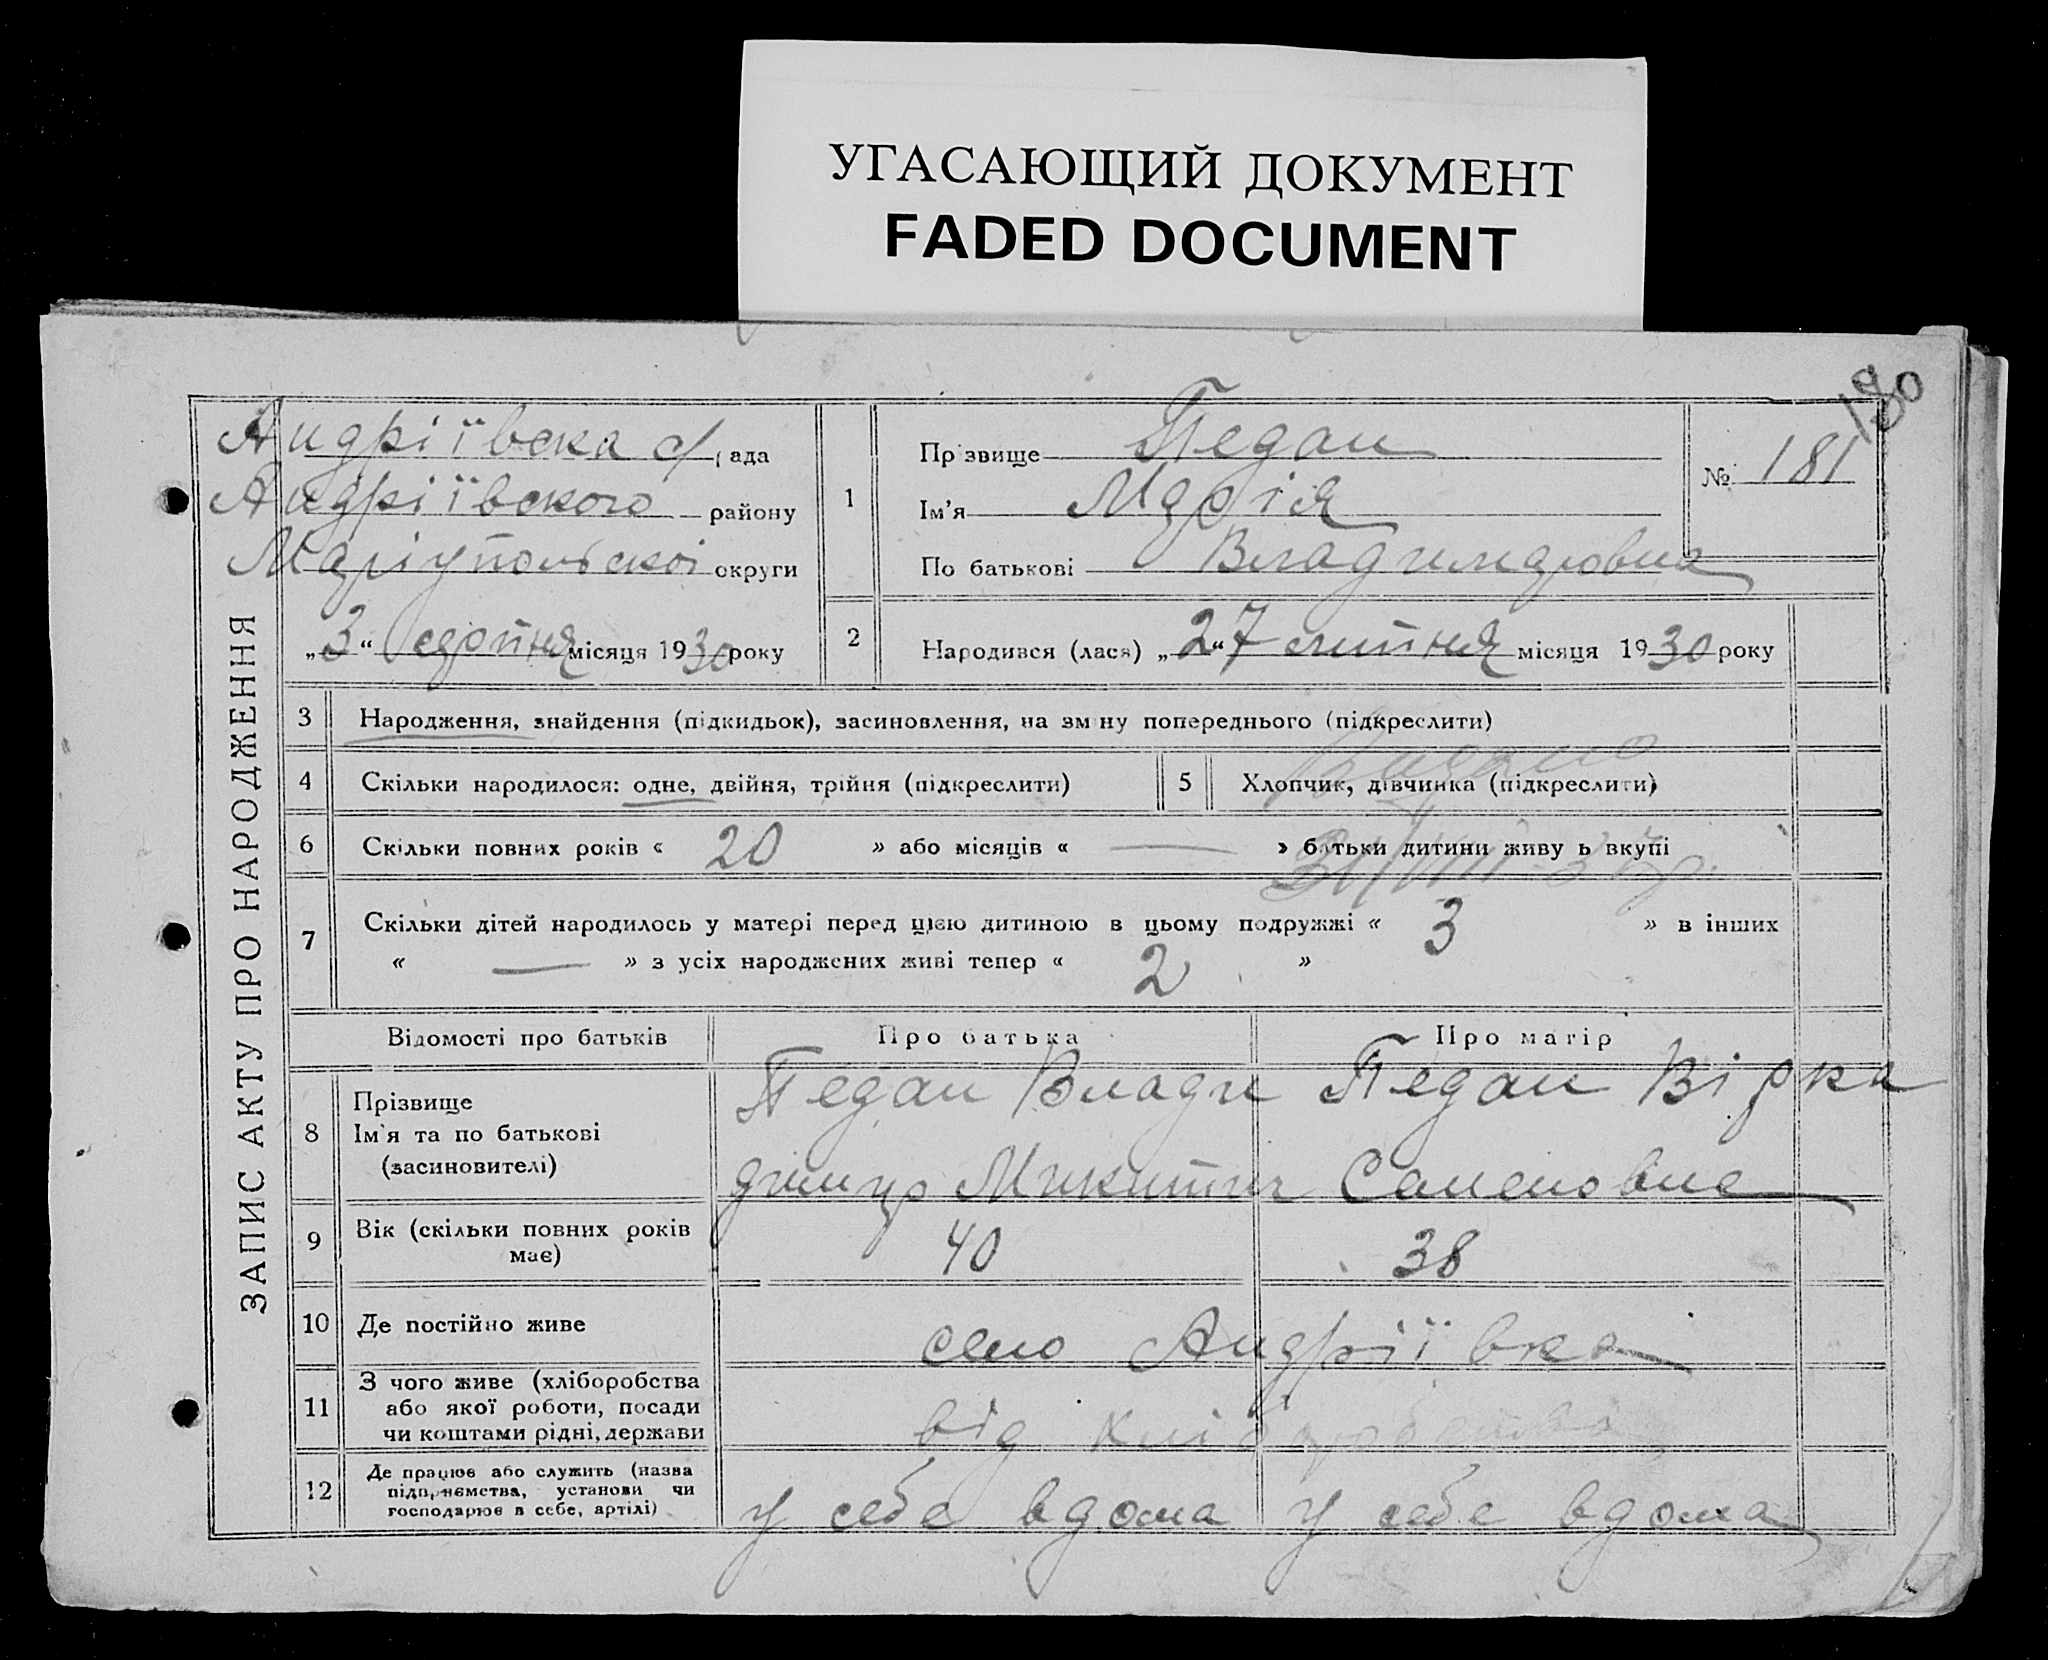 УГАСАЮЩИЙ ДОКУМЕНТ
FADED DOCUMENT
180
ЗАПИС АКТУ ПРО НАРОДЖЕННЯ
Андріївська с/рада
Андріївського району
Маріупольскоі округи
„3“ серпня місяця 1930 року
1
Прізвище Педан
Ім'я Марія
По батькові Владимировна
№ 181
2 Народився (лася) „27“ липня місяця 1930 року
3 Народження, знайдення (підкидьок), засиновлення, на зміну попереднього (підкреслити)
4 Скільки народилося: одне, двійня, трійня (підкреслити)
5 Хлопчик, дівчинка (підкреслити)
Видано
6 Скільки повних років « 20 » або місяців « — » батьки дитини живуть вкупі
31/VIII
7 Скільки дітей народилось у матері перед цією дитиною в цьому подружжі « 3 » в інших
« — » з усіх народжених живі тепер « 2 »
Відомості про батьків Про батька Про матір
8 Прізвище
Ім'я та по батькові
(засиновителі)
Педан Влади
димир Микитич
Педан Вірка
Семеновна
9 Вік (скільки повних років
має)
40 38
10 Де постійно живе село Андріївка
11 З чого живе (хліборобства
або якої роботи, посади
чи коштами рідні, держави
від хліборобства
12 Де працює або служить (назва
підприємства, установи чи
господарює в себе, артілі)
у себе вдома у себе вдома